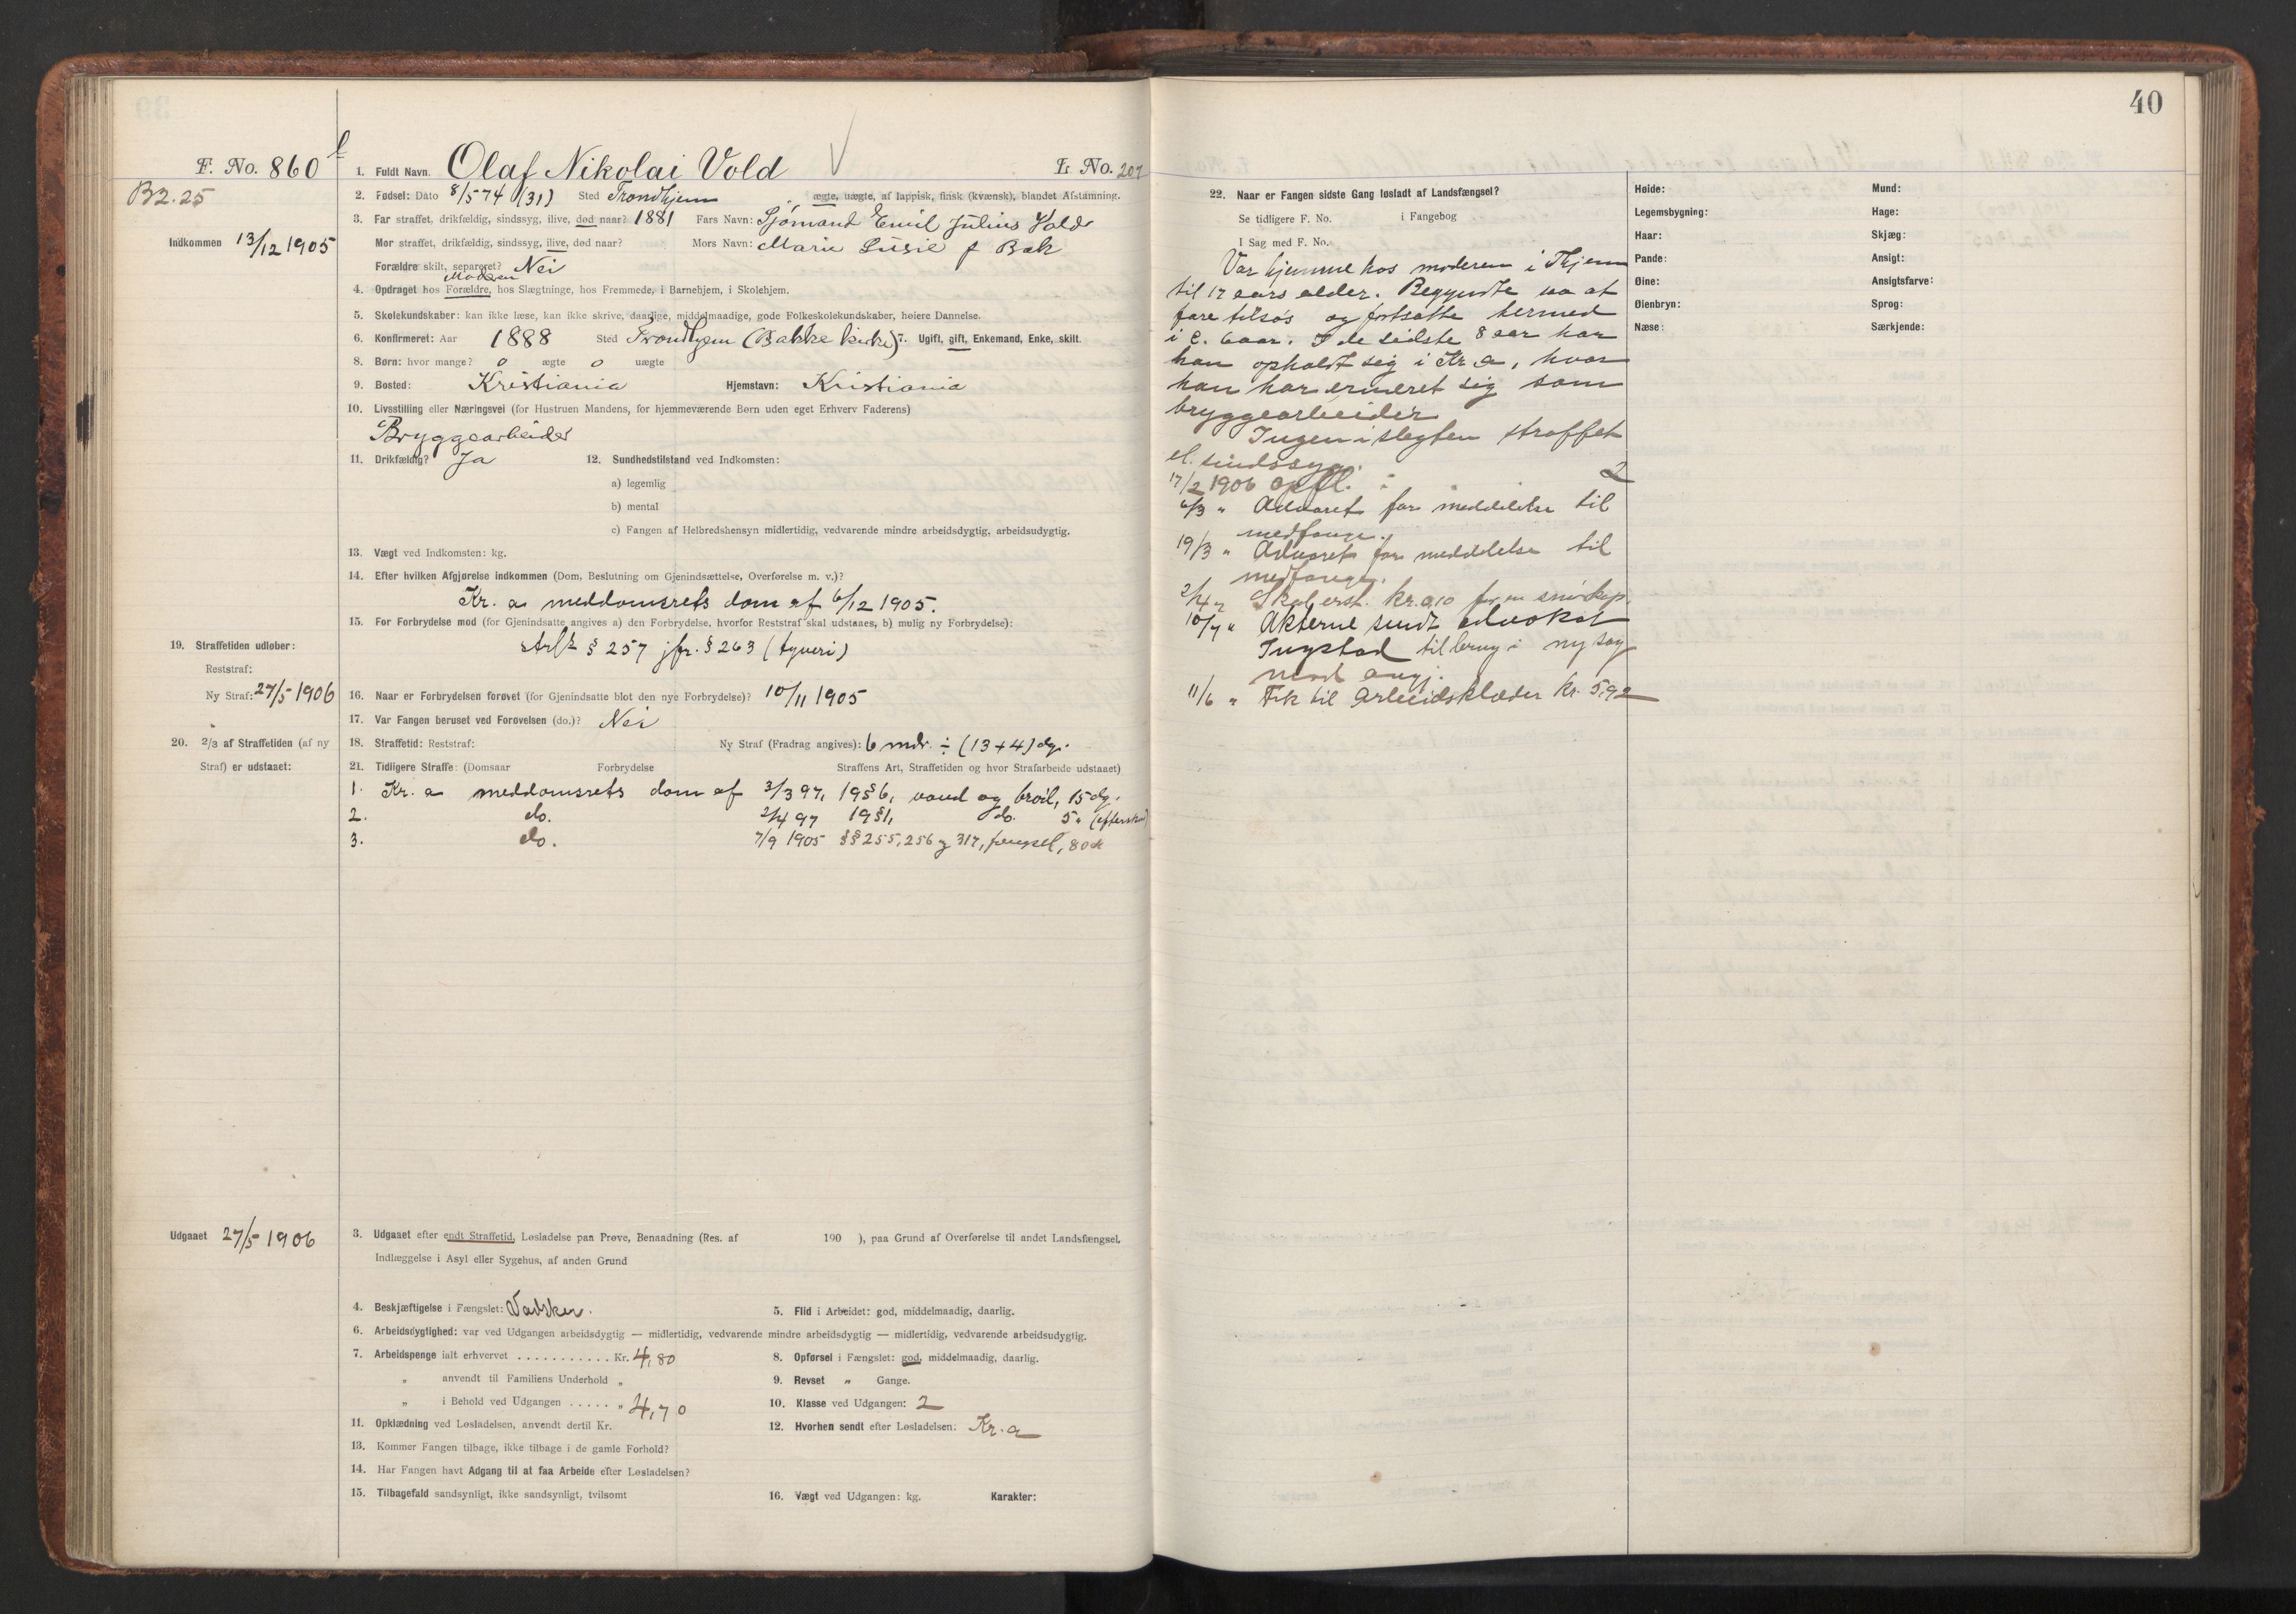 40
F. No. 860 f
B2.25
Indkommen 13/12 1905
1. Fuldt Navn. Olaf Nikolai Vold L No. 207
2. Fødsel: Dato 8/5 74 (31) Sted Trondhjem ægte, uægte, af lappisk, finsk (kvænsk), blandet Afstamning.
3. Far straffet, drikfældig, sindssyg, ilive, død naar? 1881 Fars Navn: Sjömand Emil Julius Vold
Mor straffet, drikfældig, sindssyg, ilive, død naar? Mors Navn: Marie Lusie f Bak
Forældre skilt, separeret? Nei
Moderen
4. Opdraget hos Forældre, hos Slægtninge, hos Fremmede, i Barnehjem, i Skolehjem.
5. Skolekundskaber: kan ikke læse, kan ikke skrive, daarlige, middelmaadige, gode Folkeskolekundskaber, høiere Dannelse.
6. Konfirmeret: Aar 1888 Sted Trondhjem (Bakke kirke) 7. Ugift, gift, Enkemand, Enke, skilt.
8. Børn: hvor mange? o ægte o uægte
9. Bosted: Kristiania Hjemstavn: Kristiania
10. Livsstilling eller Næringsvei (for Hustruen Mandens, for hjemmeværende Børn uden eget Erhverv Faderens)
Bryggearbeider
11. Drikfældig? Ja 12. Sundhedstilstand ved Indkomsten:
a) legemlig
b) mental
c) Fangen af Helbredshensyn midlertidig, vedvarende mindre arbeidsdygtig, arbeidsudygtig.
13. Vægt ved Indkomsten: kg.
14. Efter hvilken Afgjørelse indkommen (Dom, Beslutning om Gjenindsættelse, Overførelse m. v.)?
Kr. a meddomsrets dom af 6/12 1905.
15. For Forbrydelse mod (for Gjenindsatte angives a) den Forbrydelse, hvorfor Reststraf skal udstaaes, b) mulig ny Forbrydelse):
§ 257 jfr. § 263 (tyveri)
19. Straffetiden udløber:
Reststraf:
Ny Straf: 27/5 1906
16. Naar er Forbrydelsen forøvet (for Gjenindsatte blot den nye Forbrydelse)? 10/11 1905
17. Var Fangen beruset ved Forøvelsen (do.)? Nei
20. 2/3 af Straffetiden (af ny
Straf) er udstaaet:
18. Straffetid: Reststraf: Ny Straf (Fradrag angives): 6 mdr. ÷ (13+4) dg.
21. Tidligere Straffe: (Domsaar Forbrydelse Straffens Art, Straffetiden og hvor Strafarbeide udstaaet)
1. Kr. a meddomsrets dom af 3/3 97, 19§6, vand og bröd, 15 dg.
2. do. 2/4 97 19§1, do. 5 "
3. do. 7/9 1905 §§ 255, 256 g 317, fengsel, 80 d
Udgaaet 27/5 1906
3. Udgaaet efter endt Straffetid, Løsladelse paa Prøve, Benaadning (Res. af 190 ), paa Grund af Overførelse til andet Landsfængsel,
Indlæggelse i Asyl eller Sygehus, af anden Grund
4. Beskjæftigelse i Fængslet: Vadsker. 5. Flid i Arbeidet: god, middelmaadig, daarlig.
6. Arbeidsdygtighed: var ved Udgangen arbeidsdygtig — midlertidig, vedvarende mindre arbeidsdygtig — midlertidig, vedvarende arbeidsudygtig.
7. Arbeidspenge ialt erhvervet ........... Kr. 4,80 8. Opførsel i Fængslet: god, middelmaadig, daarlig.
" anvendt til Familiens Underhold " 9. Revset " Gange.
" i Behold ved Udgangen ..... " 4,70 10. Klasse ved Udgangen: 2
11. Opklædning ved Løsladelsen, anvendt dertil Kr. 12. Hvorhen sendt efter Løsladelsen: Kr. a
13. Kommer Fangen tilbage, ikke tilbage i de gamle Forhold?
14. Har Fangen havt Adgang til at faa Arbeide efter Løsladelsen?
15. Tilbagefald sandsynligt, ikke sandsynligt, tvilsomt 16. Vægt ved Udgangen: kg. Karakter:
22. Naar er Fangen sidste Gang løsladt af Landsfængsel?
Se tidligere F. No. i Fangebog
I Sag med F. No.
Var hjemme hos moderen i Thjem
til 17 aars alder. Begyndte saa at
fare tilsös og fortsatte hermed
i c. 6 aar. I de sidste 8 aar har
han opholdt sig i Kr. a, hvor
han har erneret sig som
bryggearbeider
Ingen i slegten straffet
el. sindssyg.
17/2 1906 opfl. : 2
6/3 " Advaret for meddelelse til
medfange.
19/3 " Advaret for meddelelse til
medfange.
2/4 " Skal erst. kr. 0,10 for en
10/4 " Akterne sendt advokat
Ingstad til brug i ny sag
mod angj.
11/6 " Fik til arbeidsklæder kr. 5.92
Høide: Mund:
Legemsbygning: Hage:
Haar: Skjæg:
Pande: Ansigt:
Øine: Ansigtsfarve:
Øienbryn: Sprog:
Næse: Særkjende: